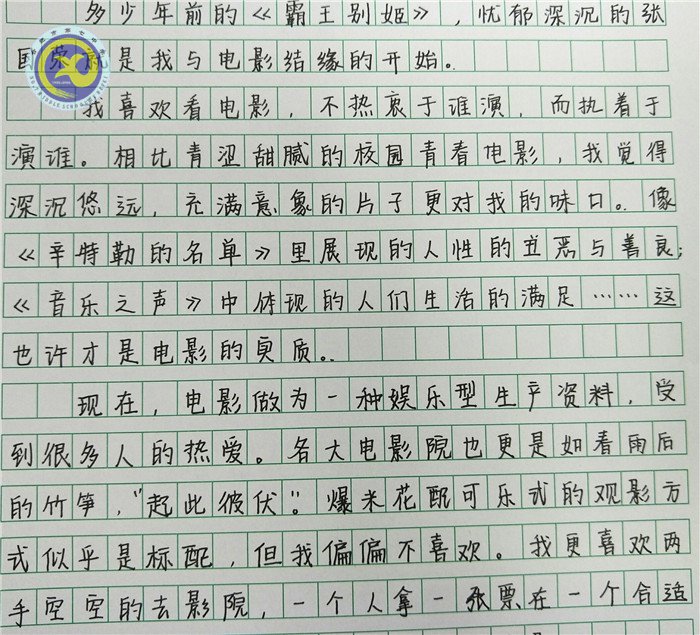 多少年前的《霸王别姬》,忧郁深沉的张
国荣就是我与电影结缘的开始。
我喜欢看电影,不热衷于谁演,而执着于
演谁。相比青涩甜腻的校园青春电影,我觉得
深沉悠远,充满意象的片子更对我的味口。像
《辛特勒的名单》里展现的人性的丑恶与善良;
《音乐之声》中体现的人们生活的满足……这
也许才是电影的真质。
现在,电影做为一种娱乐型生产资料,受
到很多人的热爱。各大电影院也更是如春雨后
的竹笋,"起此彼伏"。爆米花配可乐式的观影方
式似乎是标配,但我偏偏不喜欢。我更喜欢两
手空空的去影院,一个人拿一张票在一个合适